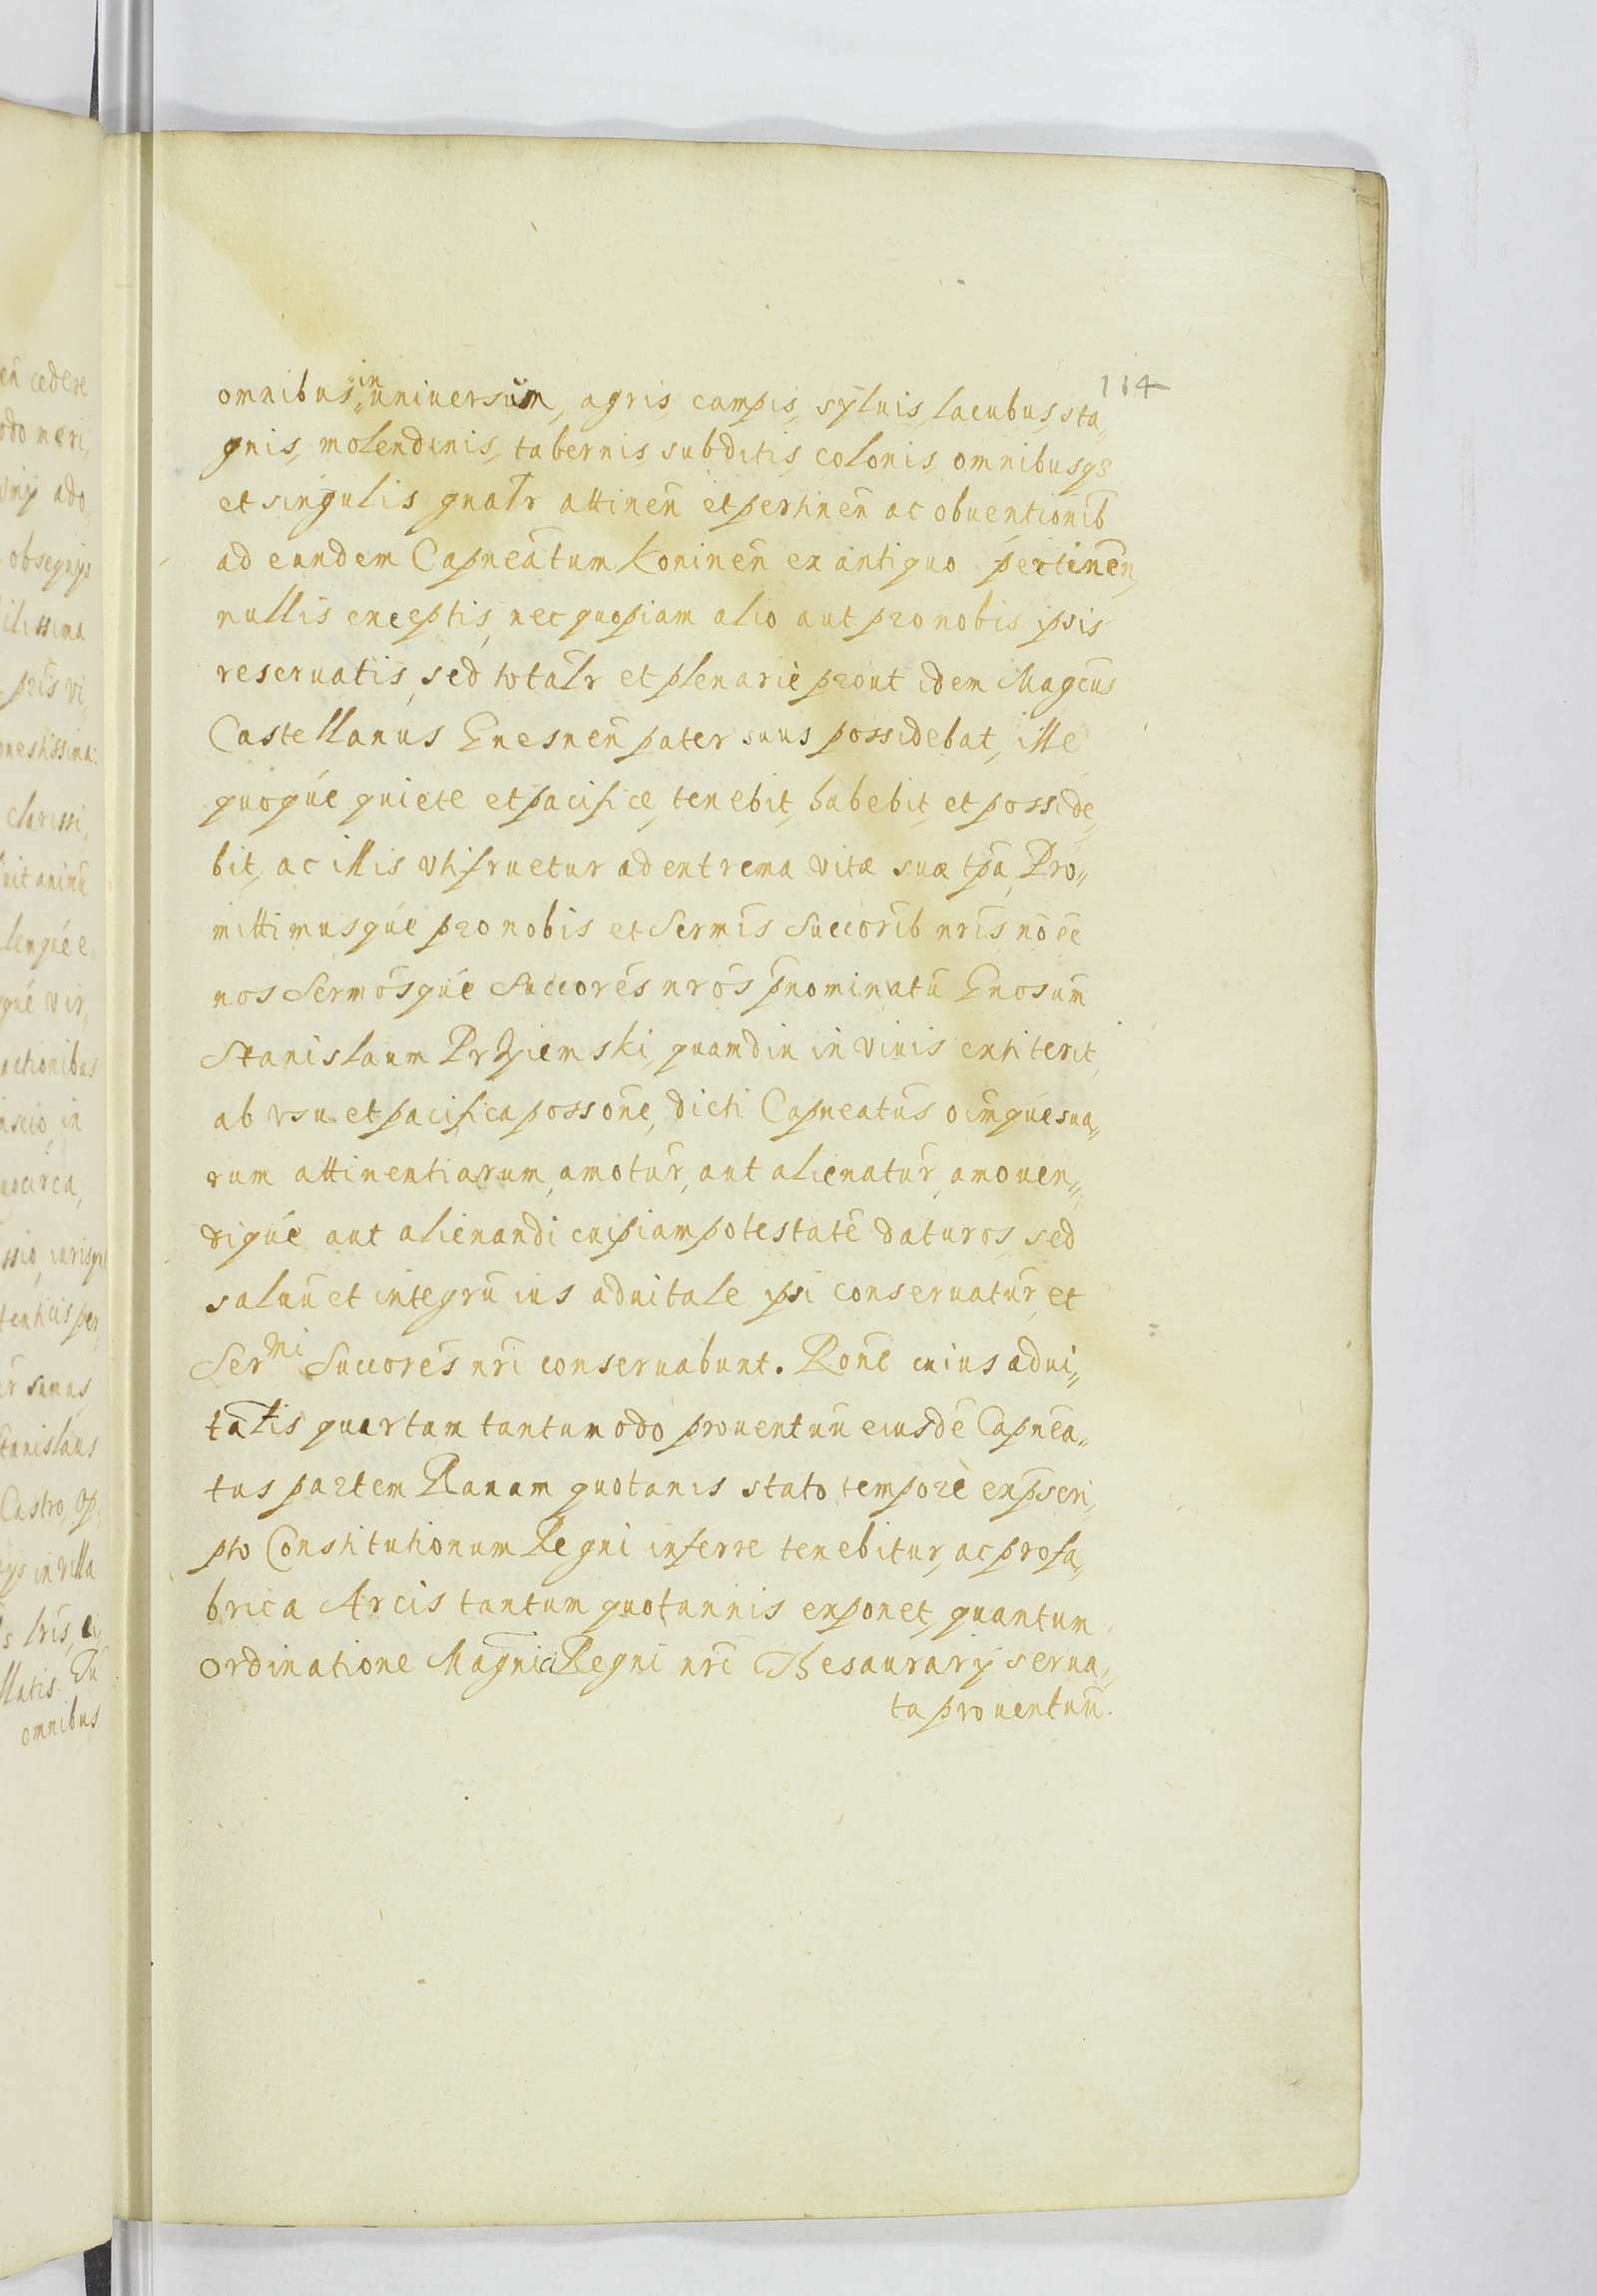 114
omnibus in uniuersum, agris, campis, syluis, lacubus, sta„
gnis, molendinis, tabernis, subditis, colonis, omnibusqȝ
et singulis gnãlr attineñ et pertineñ ac obuentionib̃
ad eundem Capneãtum Konineñ ex antiquo pertineñ,
nullis exceptis, nec quopiam alio aut pro nobis ipsis
reseruatis, sed totalr̃ et plenariè prout idem Magcũs
Castellanus Gnesneñ pater suus possidebat, ille
quoqúe quiete et pacifice, tenebit, habebit, et posside„
bit, ac illis vtifruetur ad extrema vitæ suæ tp̃a, Pro„
mittimusqúe pro nobis et Sermis̃ Succorib̃ nris̃ nõ eẽ
nos Sermosqúe̓ Succorẽs nrõs p̃nominatũ Gnosum̃
Stanislaum Przÿiemski, quamdiu in viuis extiterit,
ab vsu et pacifica possõne, dicti Capneatũs oĩmqúe sua„
rum attinentiarum, amotur̃, aut alienatur̃, amouen„
diqúe aut alienandi cuipiam potestatẽ daturos, sed
saluũ et integrũ ius aduitale ipsi conseruatur̃, et
Serᵐⁱ Succorẽs nrĩ conseruabunt. Ronẽ cuius adui„
talĩs quartam tantumodo prouentuũ eiusdẽ Capnẽa„
tus partem Ranam quotanis stato temporè ex p̃scri„
pto Constitutionum Regni inferre tenebitur, ac pro fa„
brica Arcis tantum quotannis exponet, quantum
ordinatione Magnĩci Regni nrĩ Thesaurarÿ serua„
ta prouentuũ.
en cedere
obsequÿs
ilissima
onestissima
clarissi„
actionibus
Stanislaus
Castro,
in villa
omnibus